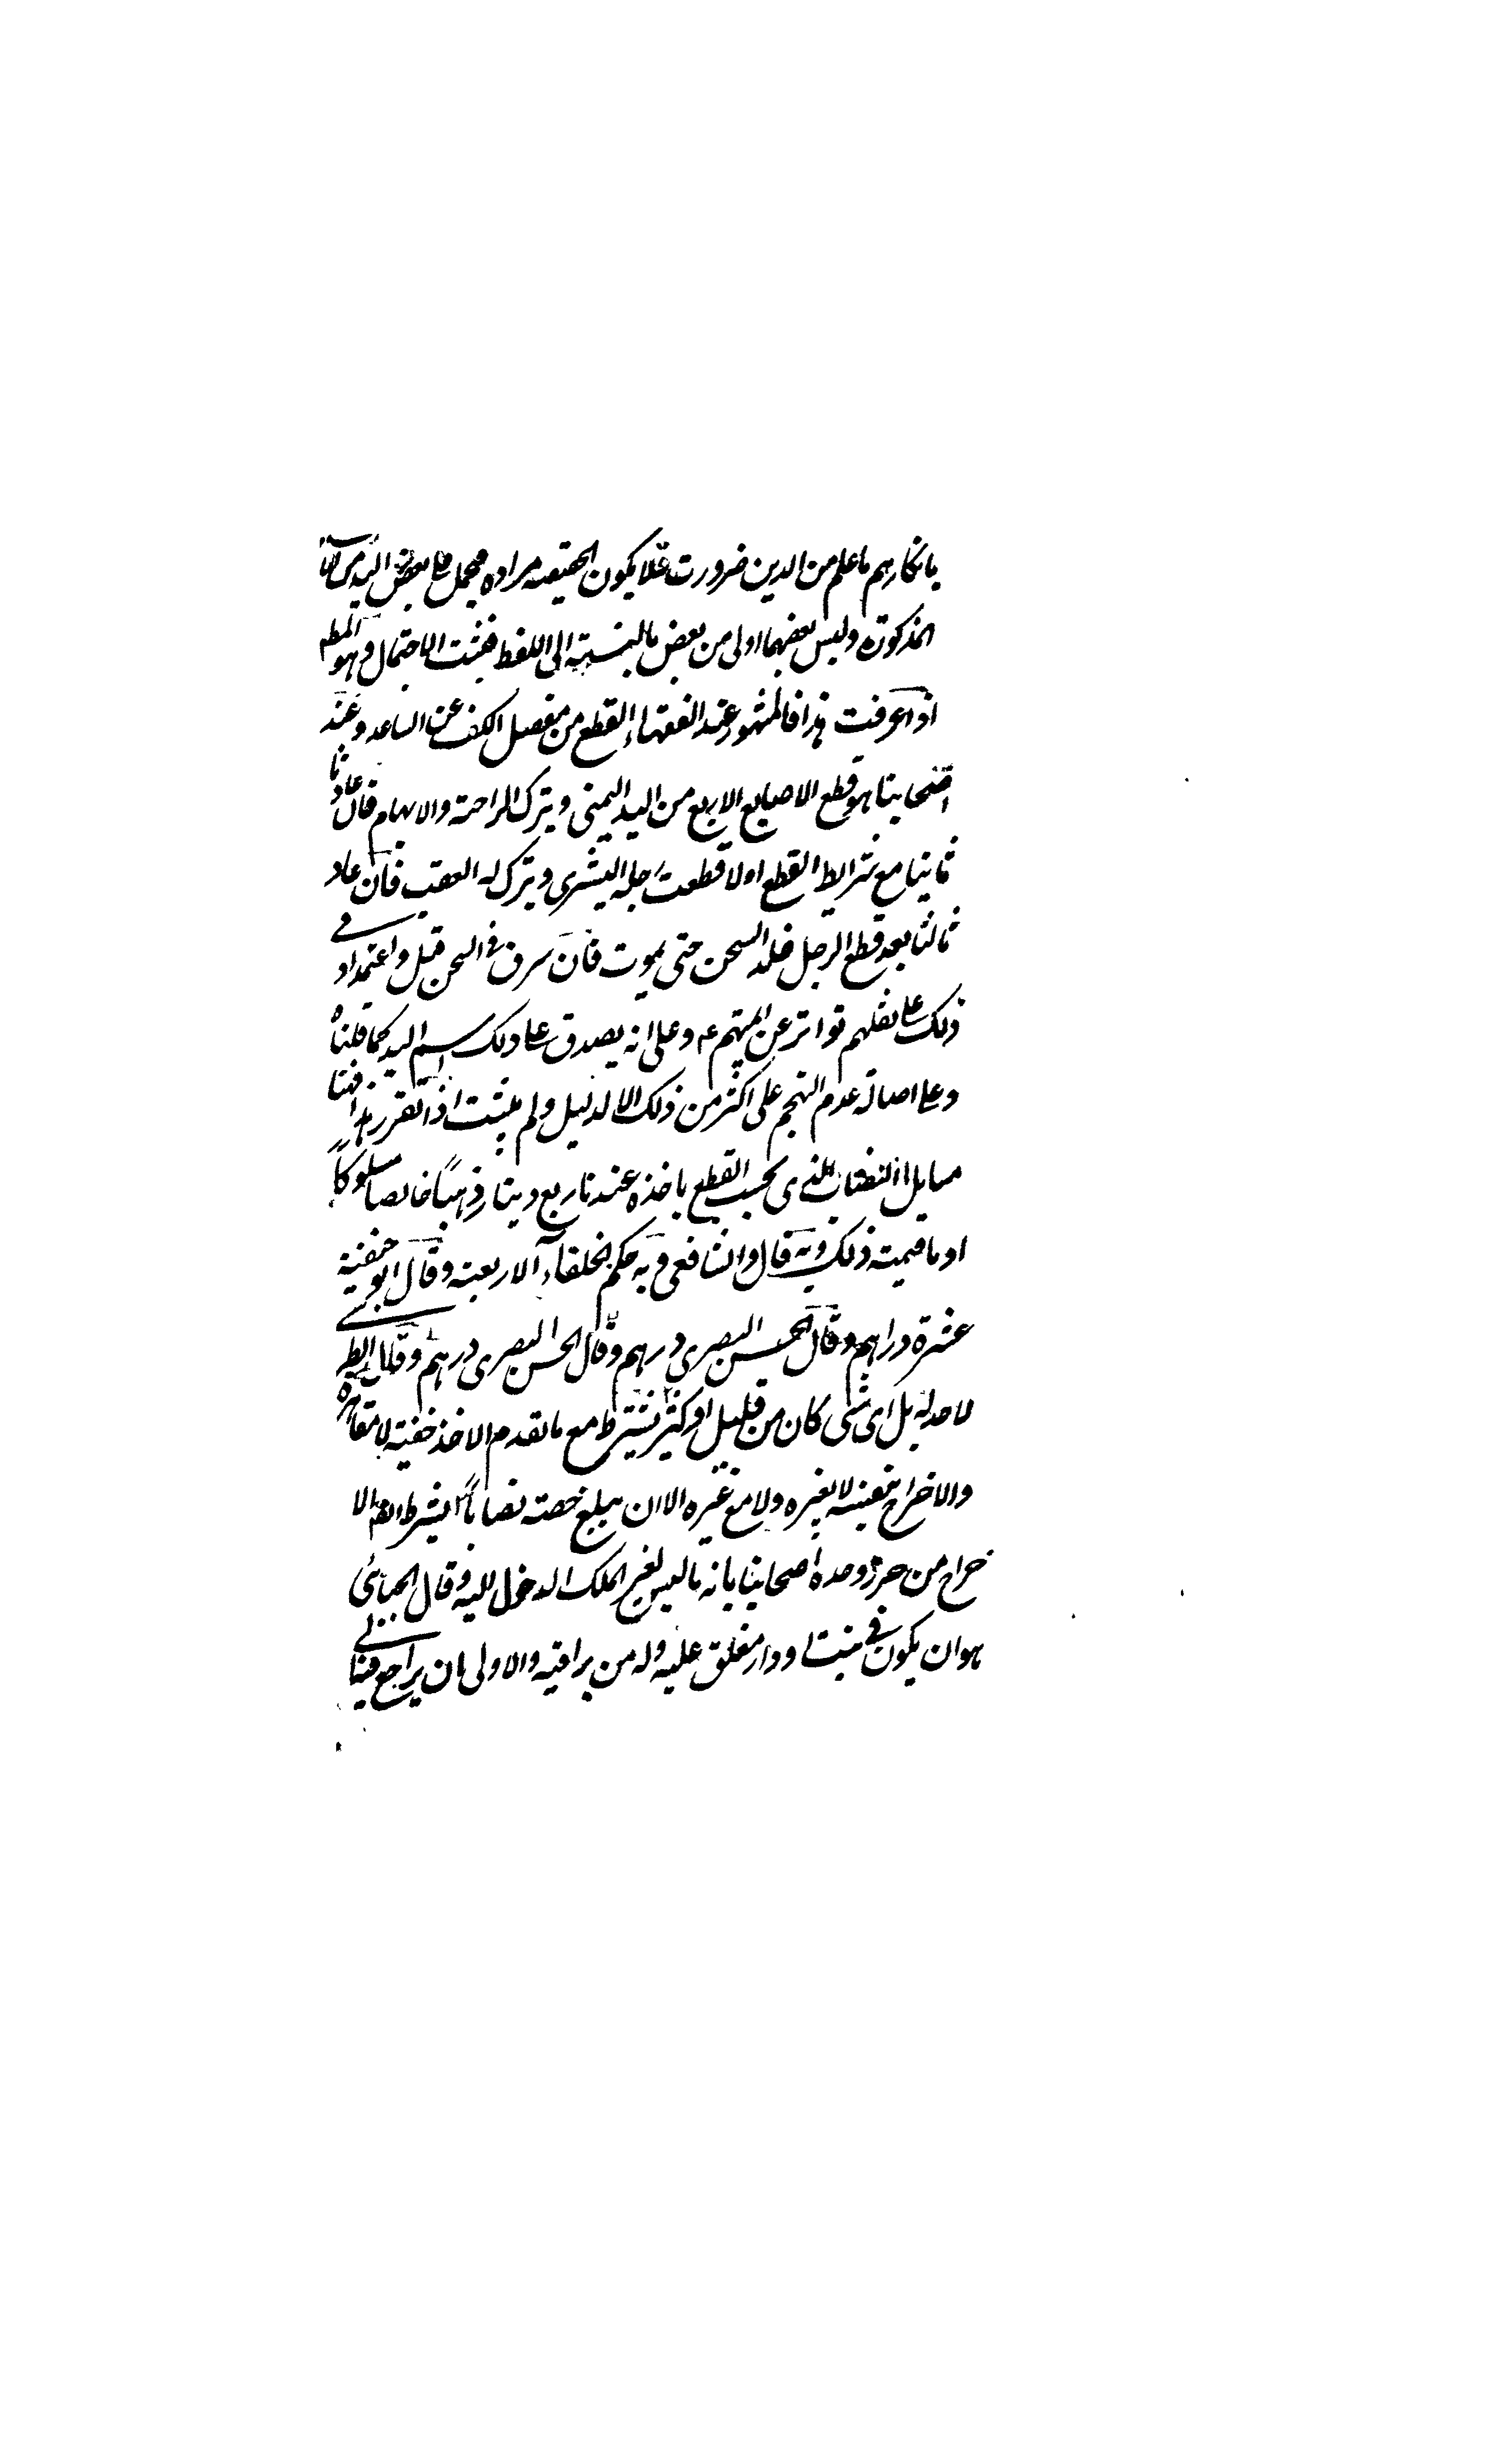 بانكارهم ما علم من الدين ضرورت فلا يكون الحقيقه مراده فيحمل على بعض اليد من
المذكورة وليس بعضها اولى من بعض بالنسبة الى اللفظ فيثبت الاجمال وهو المط
اذا عرفت هذا فالمشهور عند الفقهاء القطع من مفصل الكف عن الساعد وعند
اصحابنا هو قطع الاصابع الاربع من اليد اليمنى ويترك الراحة والابهام فان عاد
ثانيا مع شرايط القطع اولا قطعت رجله اليسرى ويترك له العقب فان عاد
ثالثا بعد قطع الرجل خلد السجن حتى يموت فان سرق فى السجن قتل واعتمدوا فى
ذلك على نقلهم تواتر عن ائمتهم ع وعلى انه يصدق على ذلك اسم اليد كما قلناه
وعلى اصالة عدم التهجم على اكثر من ذلك الا لدليل ولم يثبت اذا تقرر هذا فهنا
مسايل ا النصاب الذى يجب القطع باخذه عندنا ربع دينار ذهبًا خالصا مسكوكاً
او ما قيمته ذلك وبه قال الشافعى وبه حكم الخلفاء الاربعة وقال ابو حنيفة
عشرة دراهم وقال الحسن البصرى درهم وقال الحسن البصرى درهم وقال
لا حد له بل اى شىء كان من قليل او كثير ٢ يشترط مع ما تقدم الاخذ خفية لا مقاهرة
والاخراج بنفسه لا بغيره ولا مع غيره الا ان يبلغ حصته نصاباً ٣ يشرط الا
خراج من حرز وحده اصحابنا بانه ما ليس لغير المالك الدخول اليه وقال الجبائى
هو ان يكون فى بيت او دار مغلق عليه وله من يراقبه والاولى ان يراجع فى